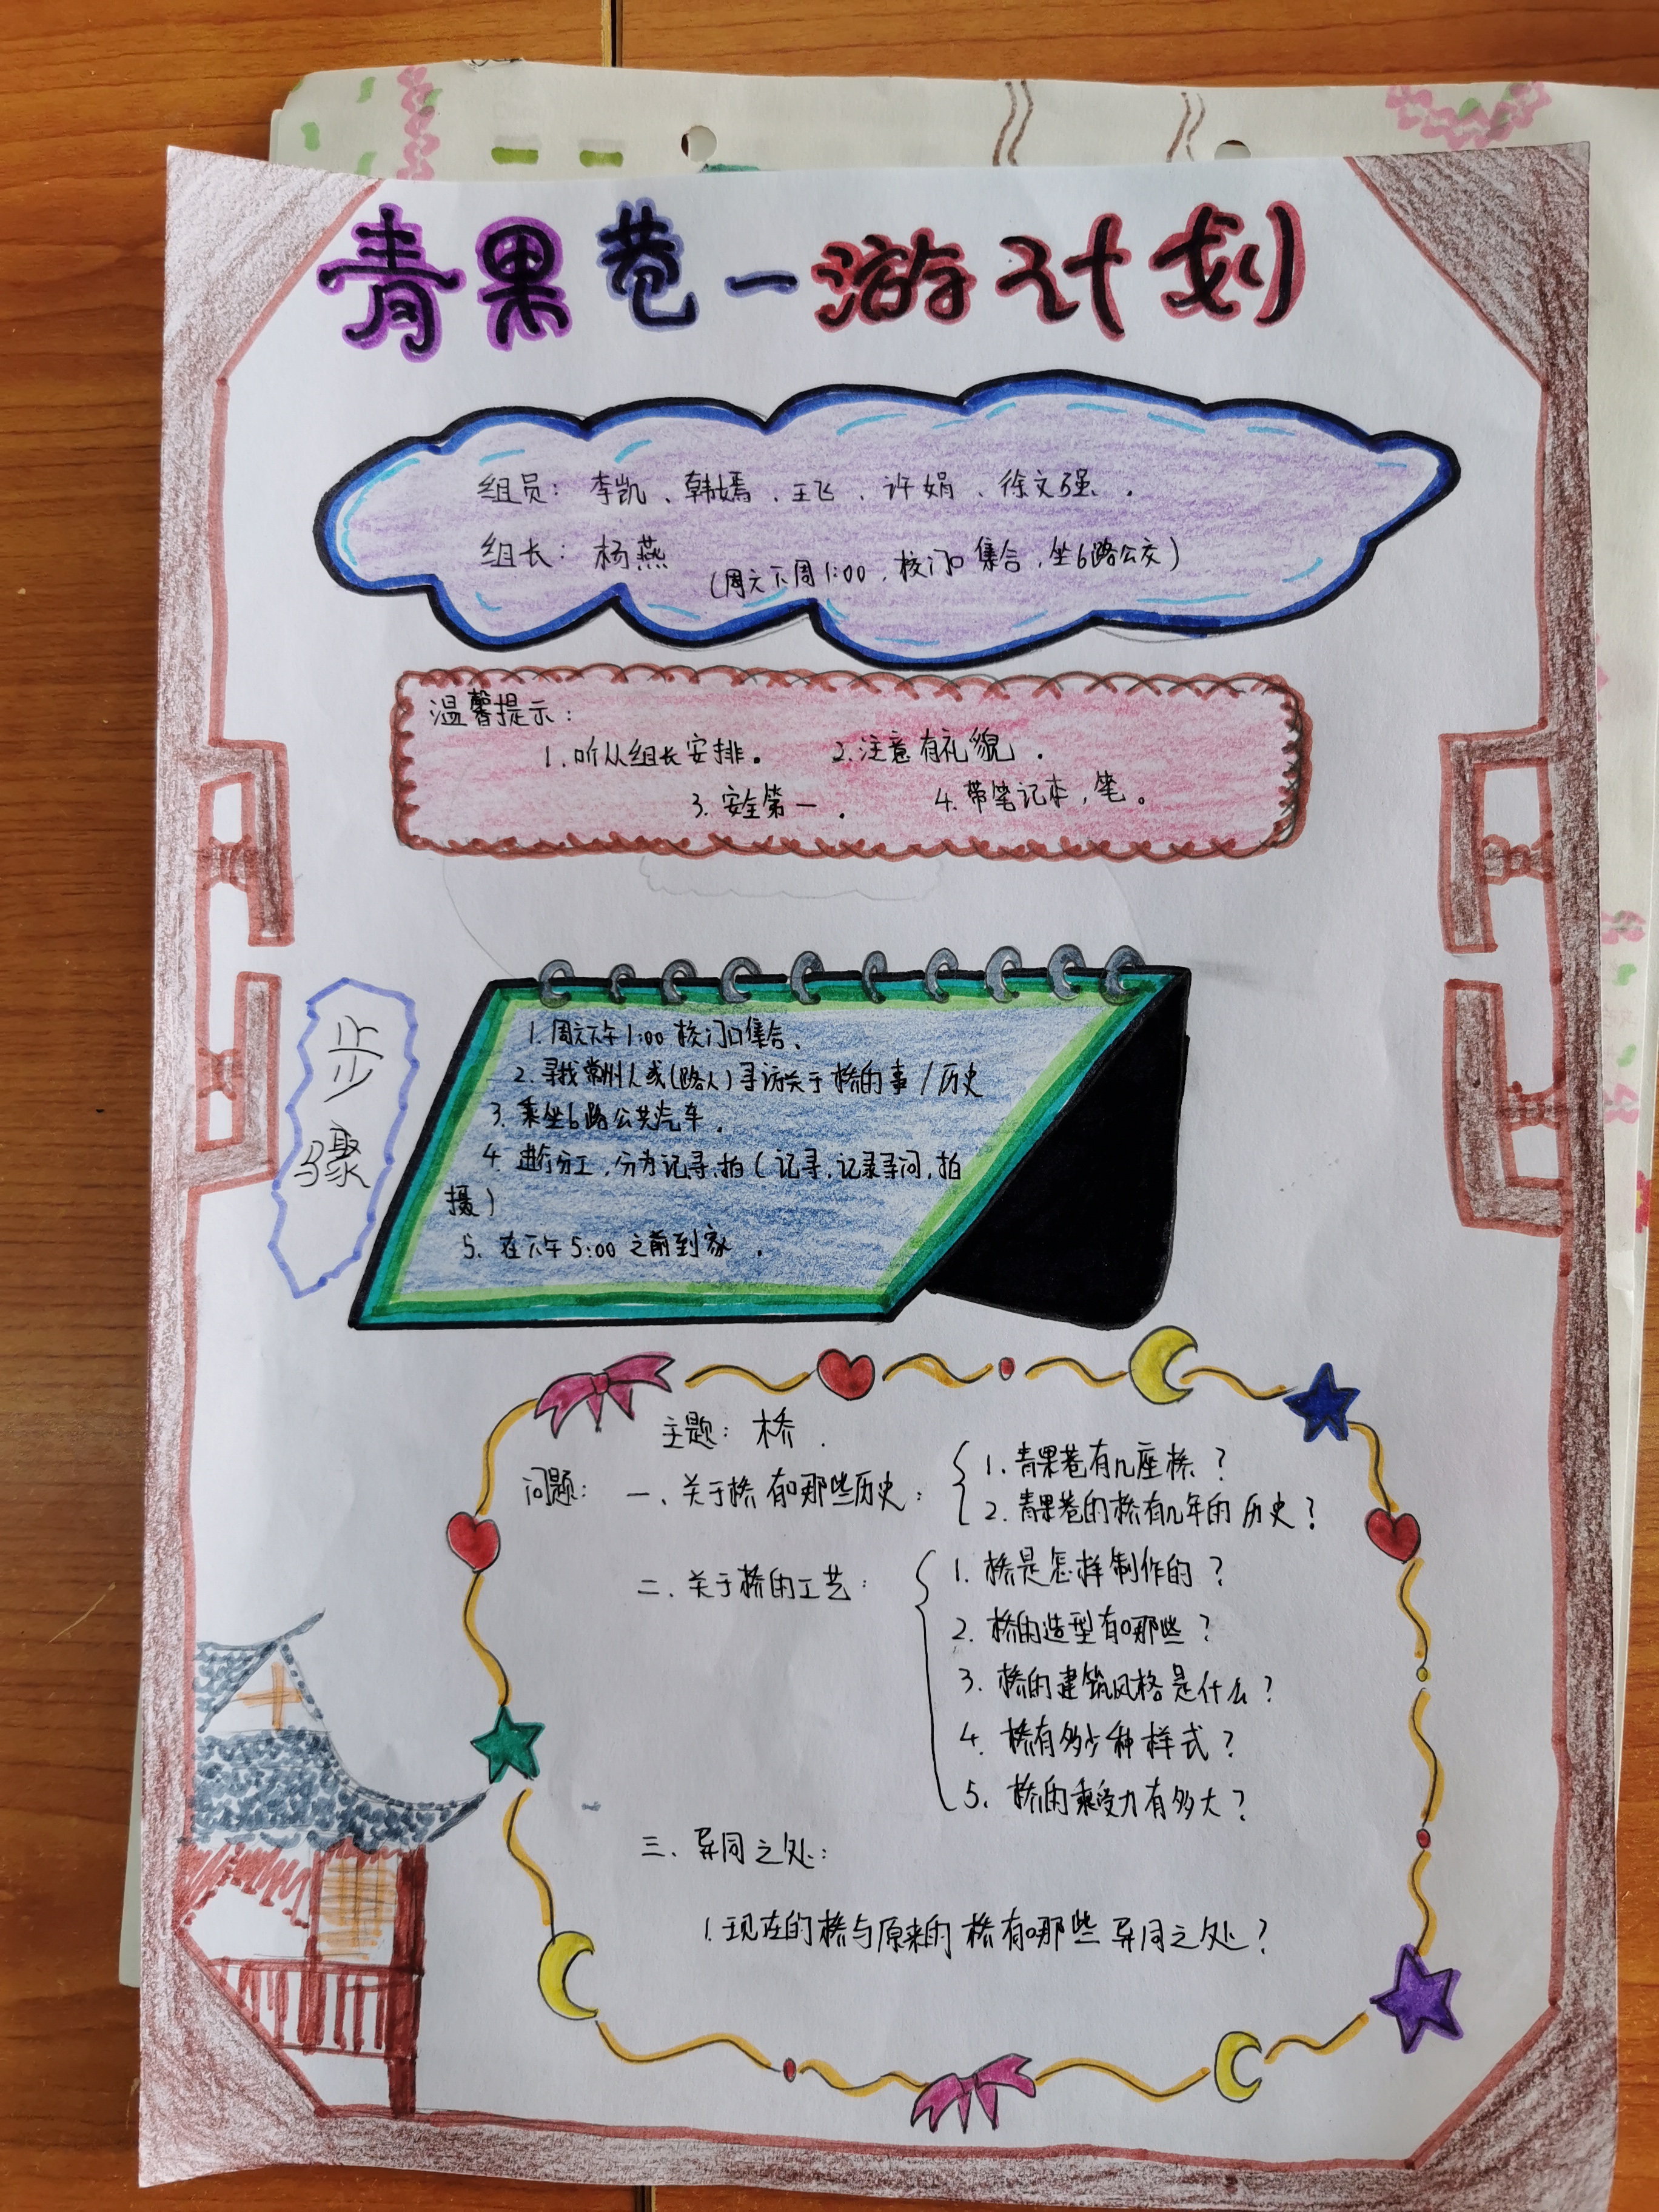 青果巷一游计划
组员：李凯、韩嫣、王飞、许娟、徐文强.
组长：杨燕
(周六下周1:00,校门口集合,坐6路公交)
温馨提示：
1.听从组长安排。 2.注意有礼貌.
3.安全第一. 4.带笔记本,笔。
步骤
1.周六下午1:00校门口集合、
2.寻找常州人或(路人)寻访关于桥的事/历史
3.乘坐6路公共汽车.
4.进行分工,分为记寻、拍(记寻,记录寻问,拍
摄)
5.在下午5:00之前到家.
主题：桥.
问题：一、关于桥有哪些历史：
1.青果巷有几座桥？
2.青果巷的桥有几年的历史？
二、关于桥的工艺：
1.桥是怎样制作的？
2.桥的造型有哪些？
3.桥的建筑风格是什么？
4.桥有多少种样式？
5.桥的乘受力有多大？
三、异同之处：
1.现在的桥与原来的桥有哪些异同之处？